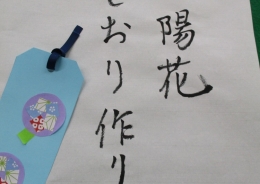 陽花
おり作り